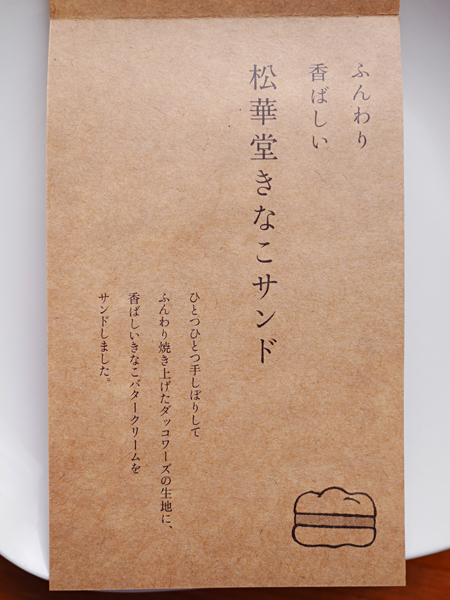 ふんわり
香ばしい
松華堂きなこサンド
ひとつひとつ手しぼりして
ふんわり焼き上げたダッコワーズの生地に、
香ばしいきなこバタークリームを
サンドしました。